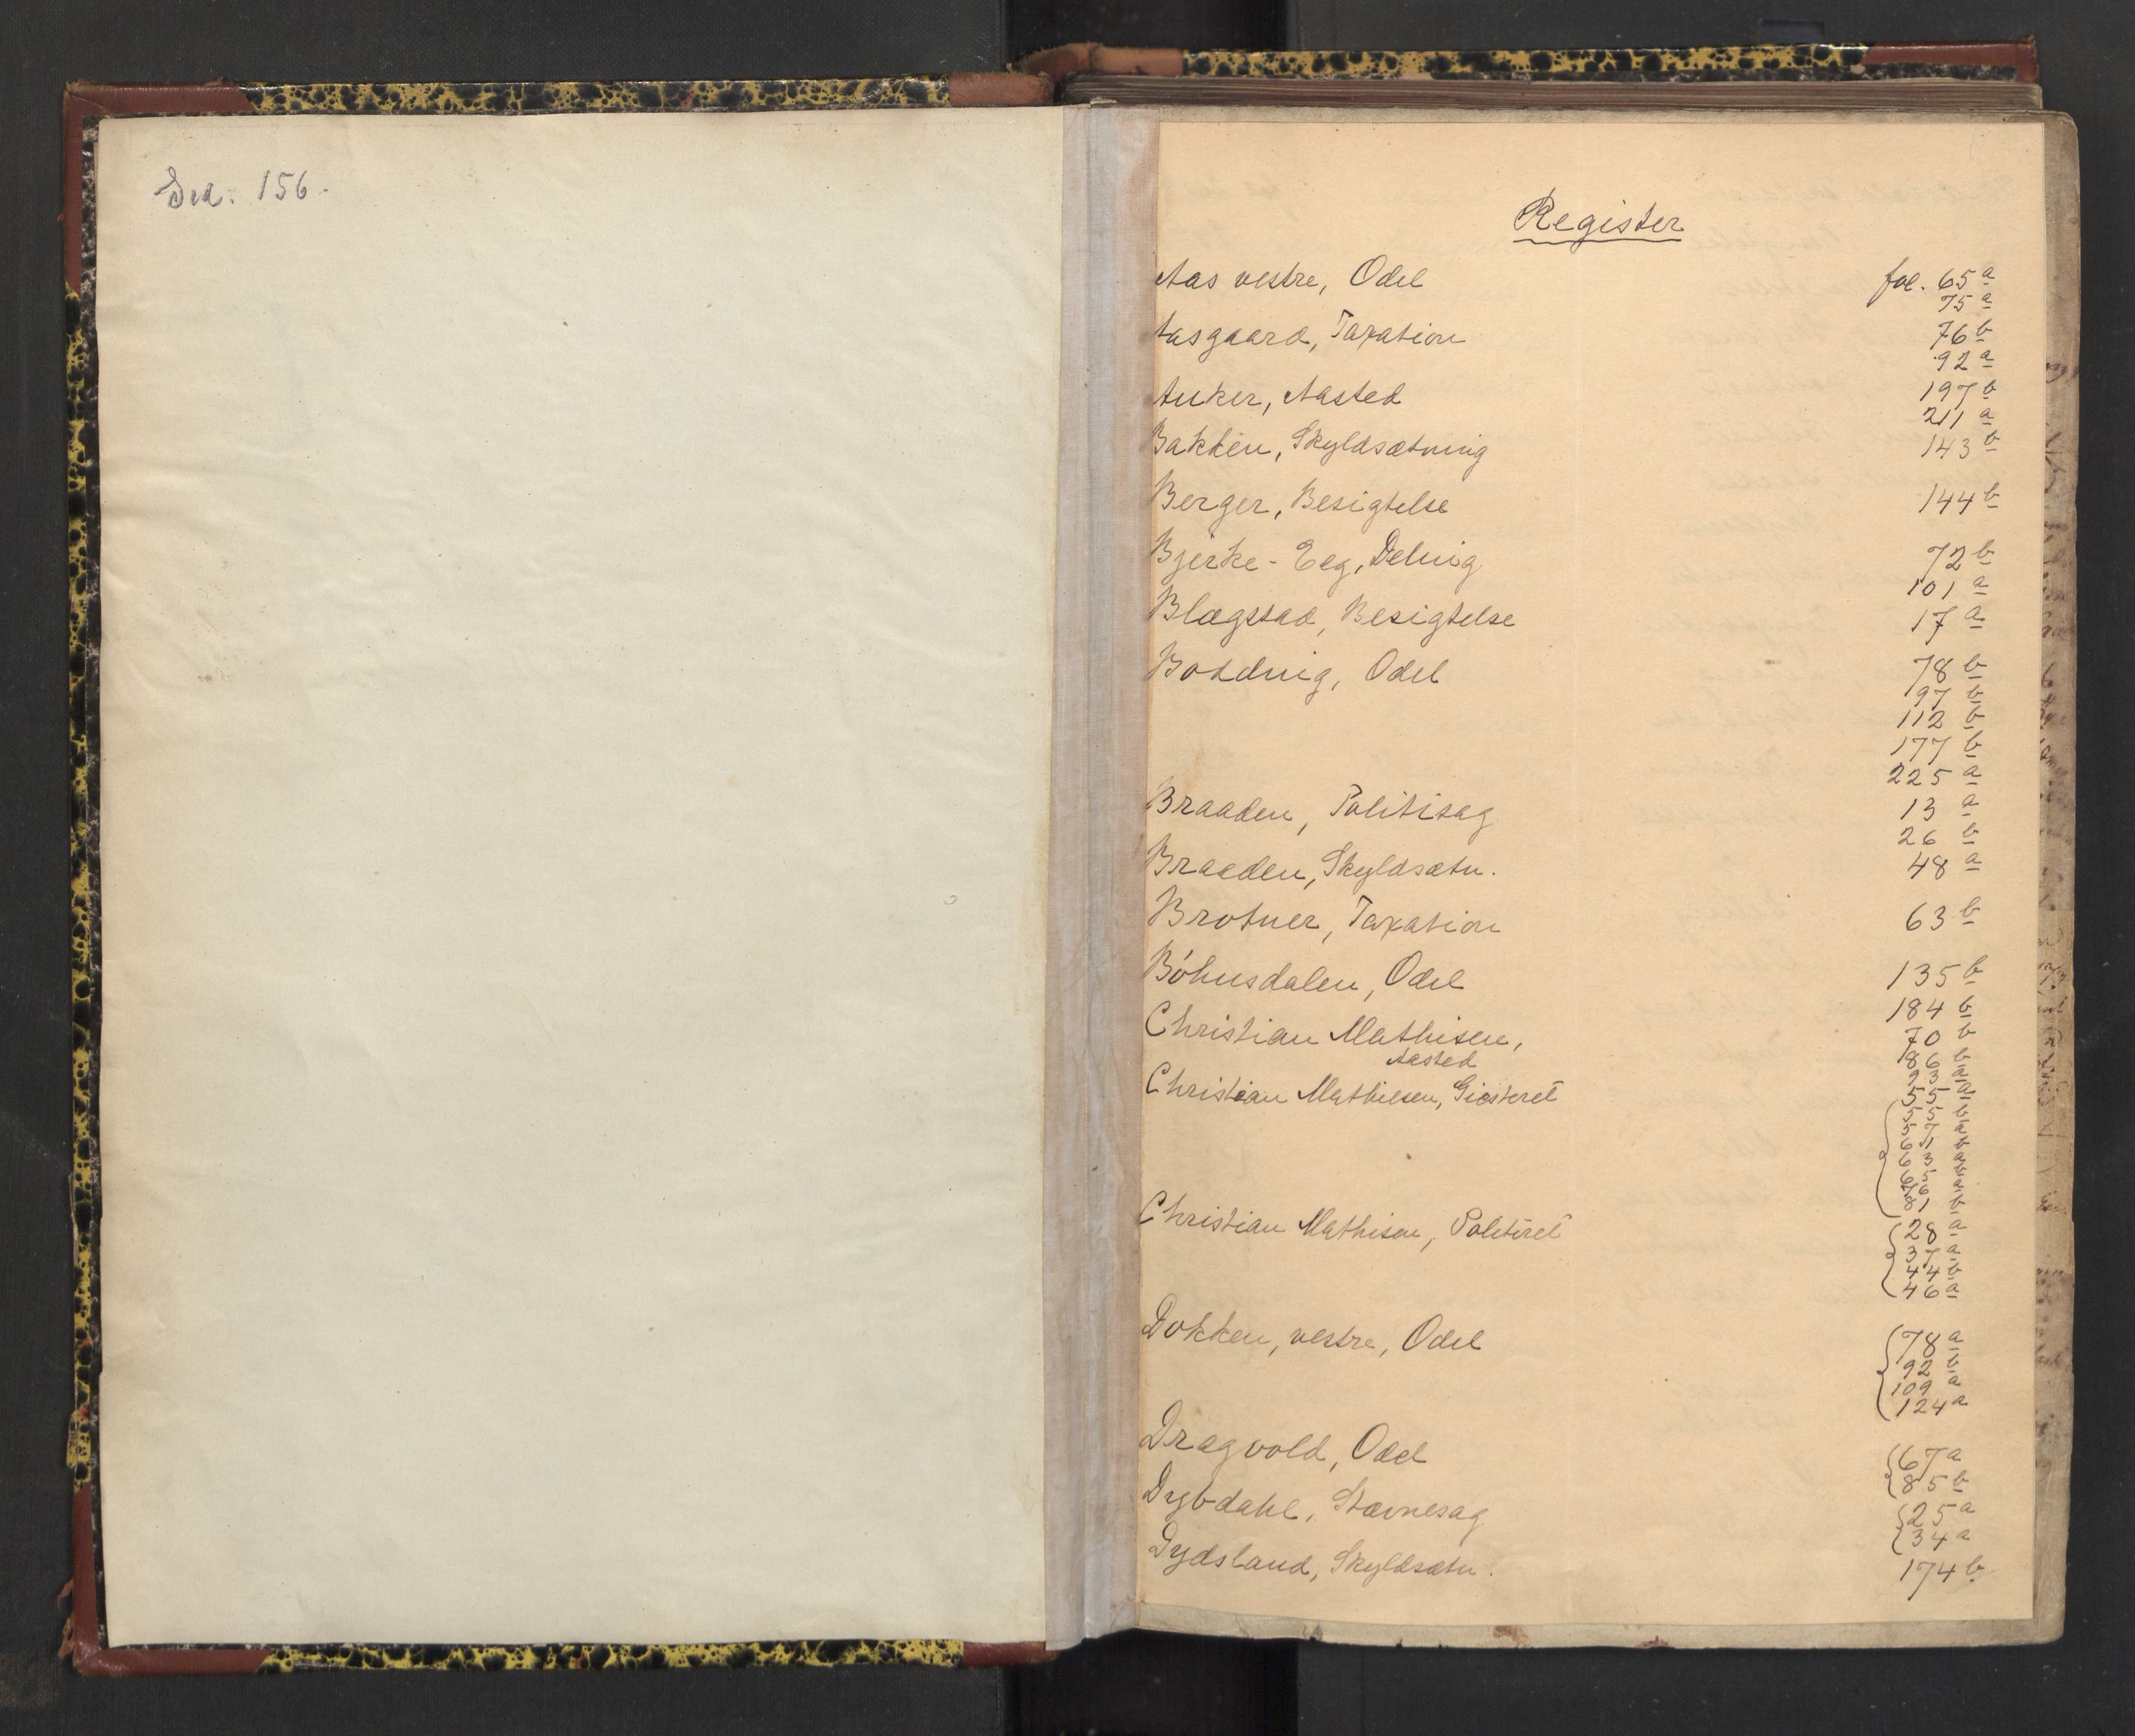 156.
Register
Aas vestre, Odel fol. 65 a
75 a
Aasgaard, Taxation 76 b
92 a
Anker, Aasted 197 b
211 a
Bakken, Skyldsætning 143 b
Berger, Besigtelse 144 b
Bjerke-Eeg, Deling 72 b
101 a
Blegstad, Besigtelse 17 a
Odel 78 b
97 b
112 b
177 b
225 a
Braaden, Politisag 13 a
26 b
Braaden, Skyldsætn. 48 a
Brotner, Taxation 63 b
Böhnsdalen, Odel 135 b
184 b
Christian Mathisen, 70 b
Aasted 86 b
93
Christian Mathiesen, Giesteret 55
55 b
57 a
61 b
63
65
81 b
Christian Mathisen, Politiret 28 a
37 a
44 b
46 a
Dokken, vestre, Odel 78 a
92 b
109 a
124 a
Dragvold, Odel 67 a
85 b
Dybdahl, Stævnesag 25 a
34 a
Dydsland, Skyldsætn. 174 b